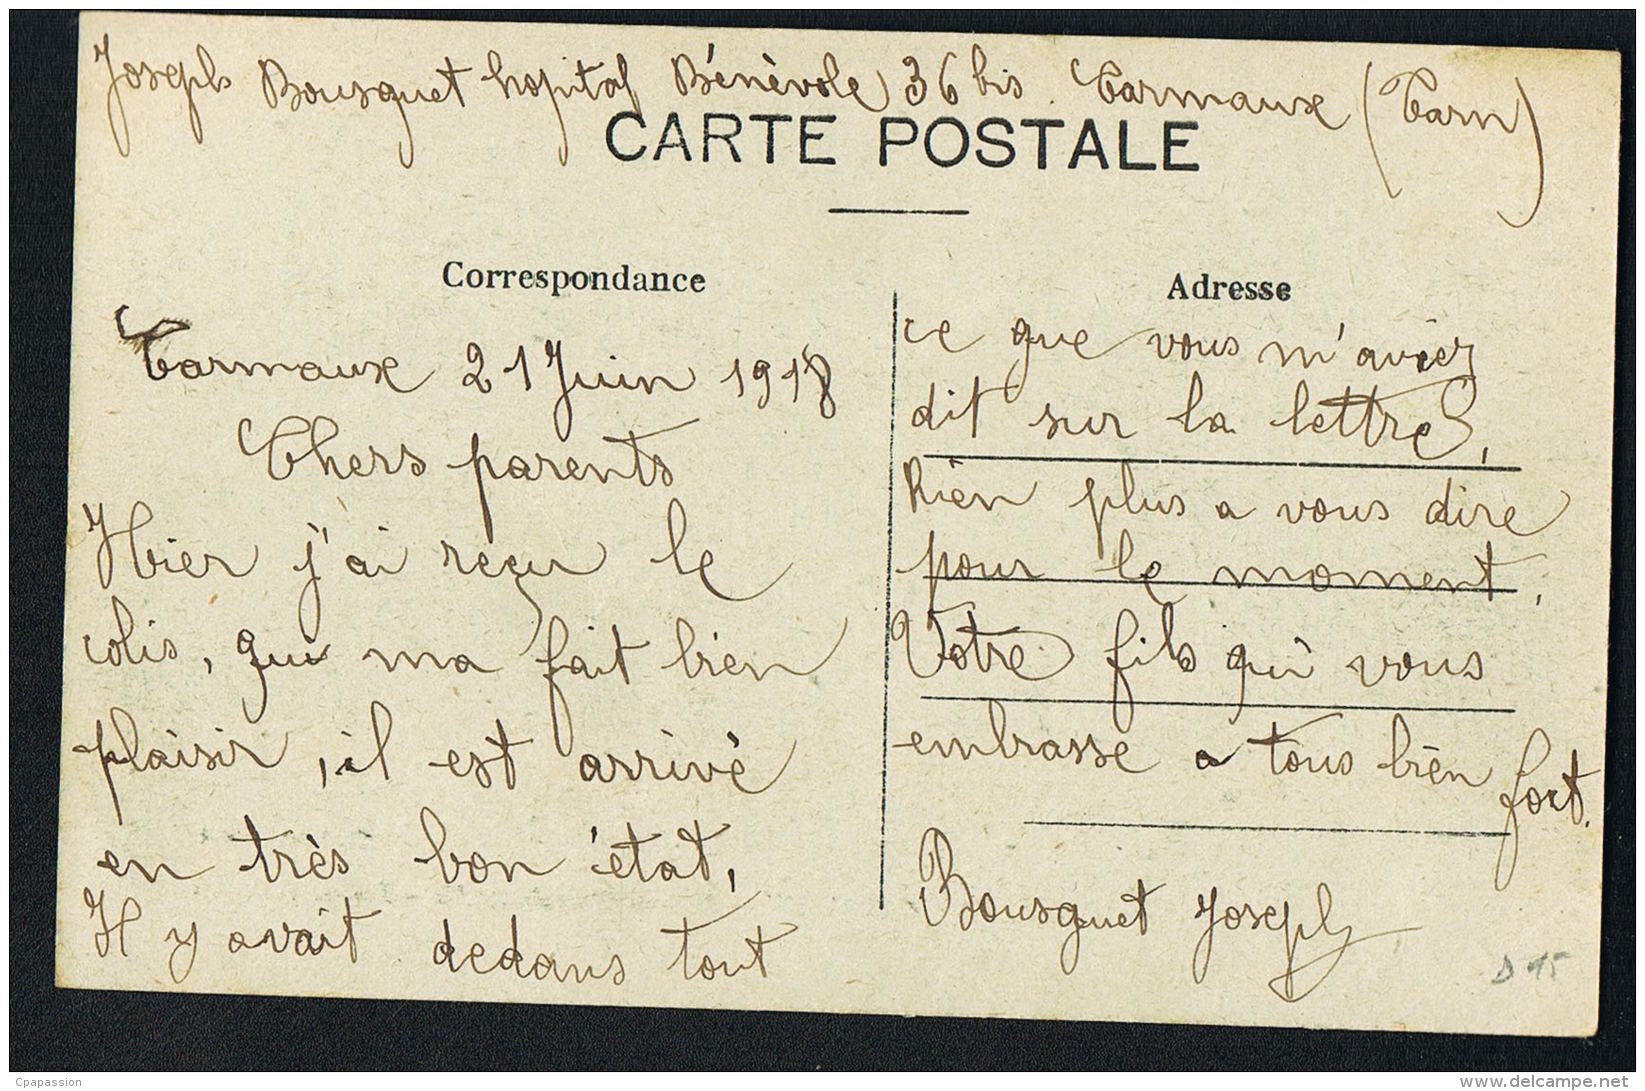 Joseph Bousquet hopital Bénèvole 36 bis. Carmaux (Tarn)
CARTE POSTALE
Correspondance
Carmaux 21 Juin 1918
Chers parents
Hier j'ai reçu le
colis, qui ma fait bien
plaisir, il est arrivé
en très bon état,
Il y avait dedans tout
Adresse
ce que vous m'aviez
dit sur la lettre,
Rien plus a vous dire
pour le moment,
Votre fils qui vous
embrasse a tous bien fort.
Bousquet Joseph
D 15
Cpapassion
www.delcampe.net